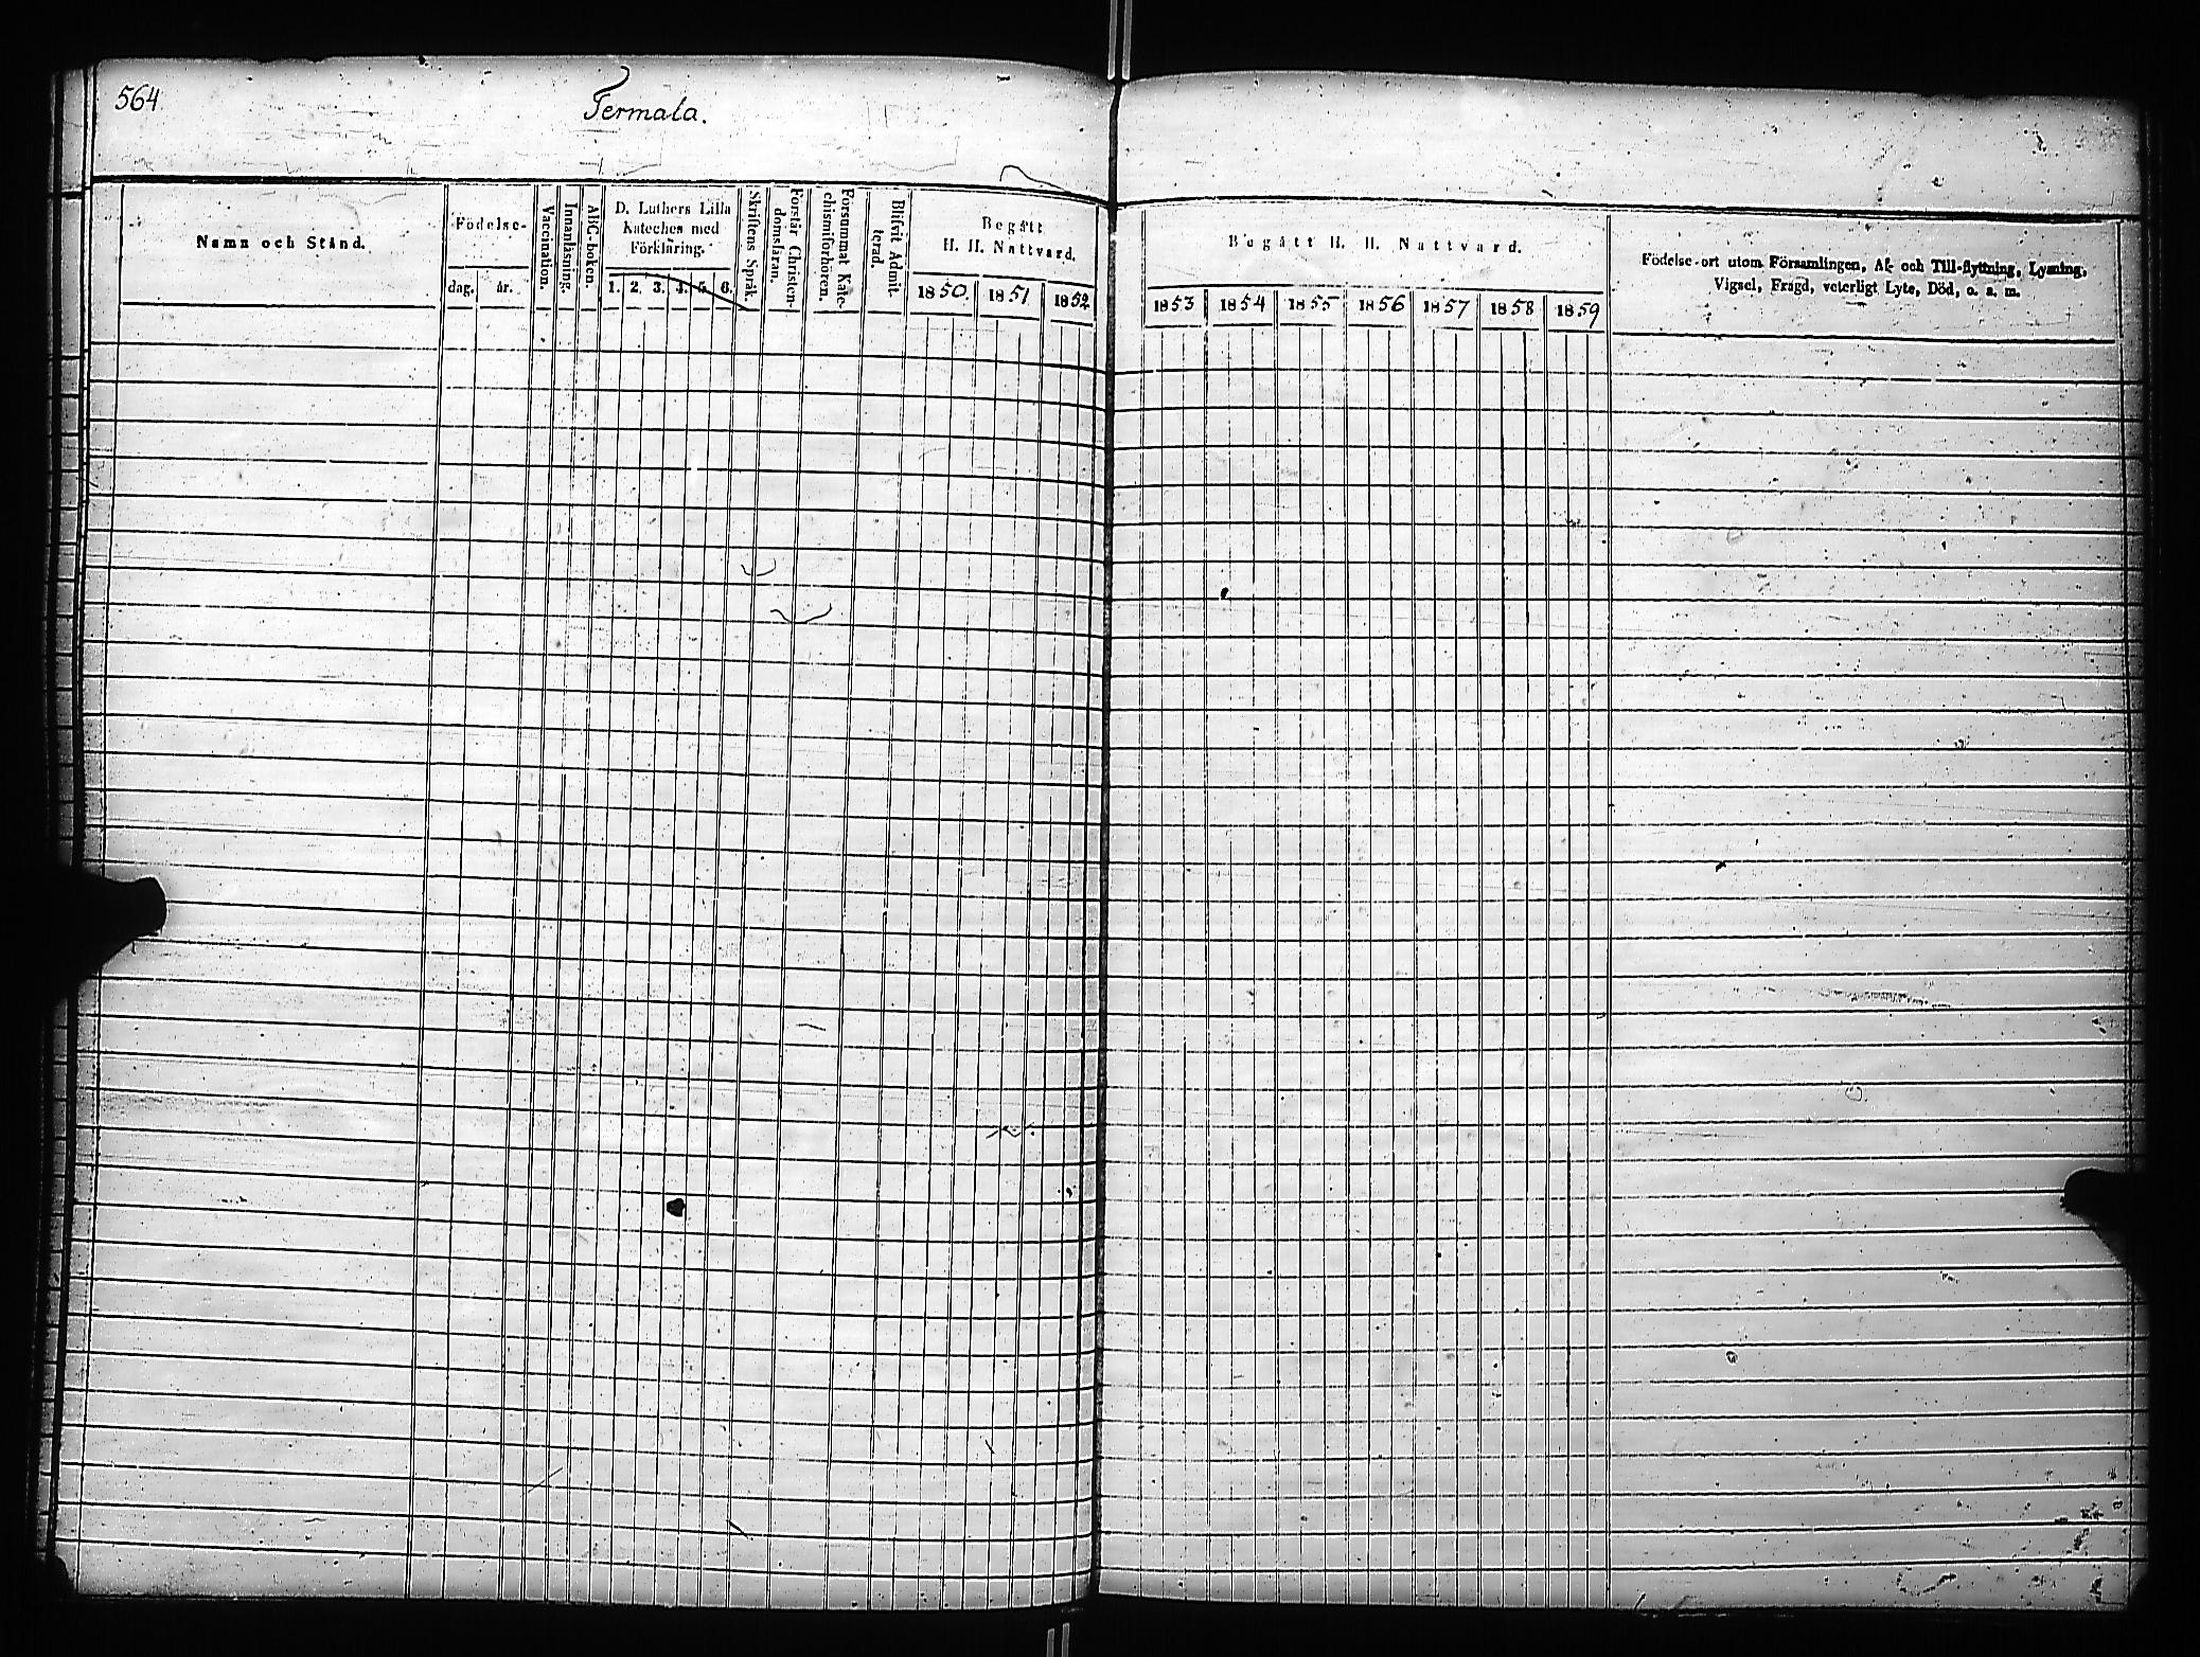 564
Termala.
Namn och Stånd.
Födelse-
dag. år.
Vaccination.
Innanläsning.
ABC-boken.
D. Luthers Lilla
Kateches med
Förklaring.
1. 2. 3. 4. 5. 6.
Skriftens Språk.
Förstår Christen-
domsläran.
Försummat Kate-
chismiförhören.
Blifvit Admit-
terad.
Begått
H. H. Nattvard.
1850. 1851 1852
Begått H. H. Nattvard.
1853 1854 1855 1856 1857 1858 1859
Födelse-ort utom Församlingen, Af- och Till-flyttning, Lysning,
Vigsel, Frägd, veterligt Lyte, Död, o. s. m.